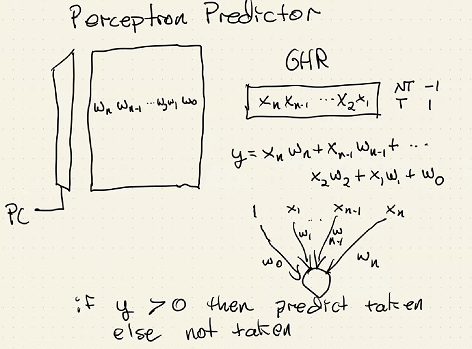 Perceptron Predictor
GHR
wₙ wₙ₋₁ ... w₂ w₁ w₀
xₙ xₙ₋₁ ... x₂ x₁
NT -1
T 1
y = xₙ wₙ + xₙ₋₁ wₙ₋₁ + ...
x₂ w₂ + x₁ w₁ + w₀
PC
1 x₁ ... xₙ₋₁ xₙ
w₀ w₁ wₙ₋₁ wₙ
if y > 0 then predict taken
else not taken